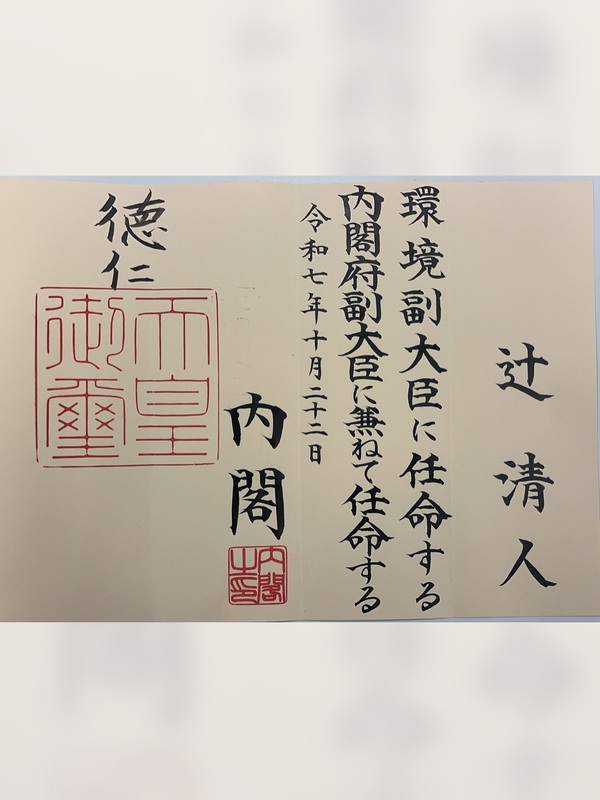 辻清人
環境副大臣に任命する
内閣府副大臣に兼ねて任命する
令和七年十月二十二日
内閣
内閣之印
徳仁
天皇御璽